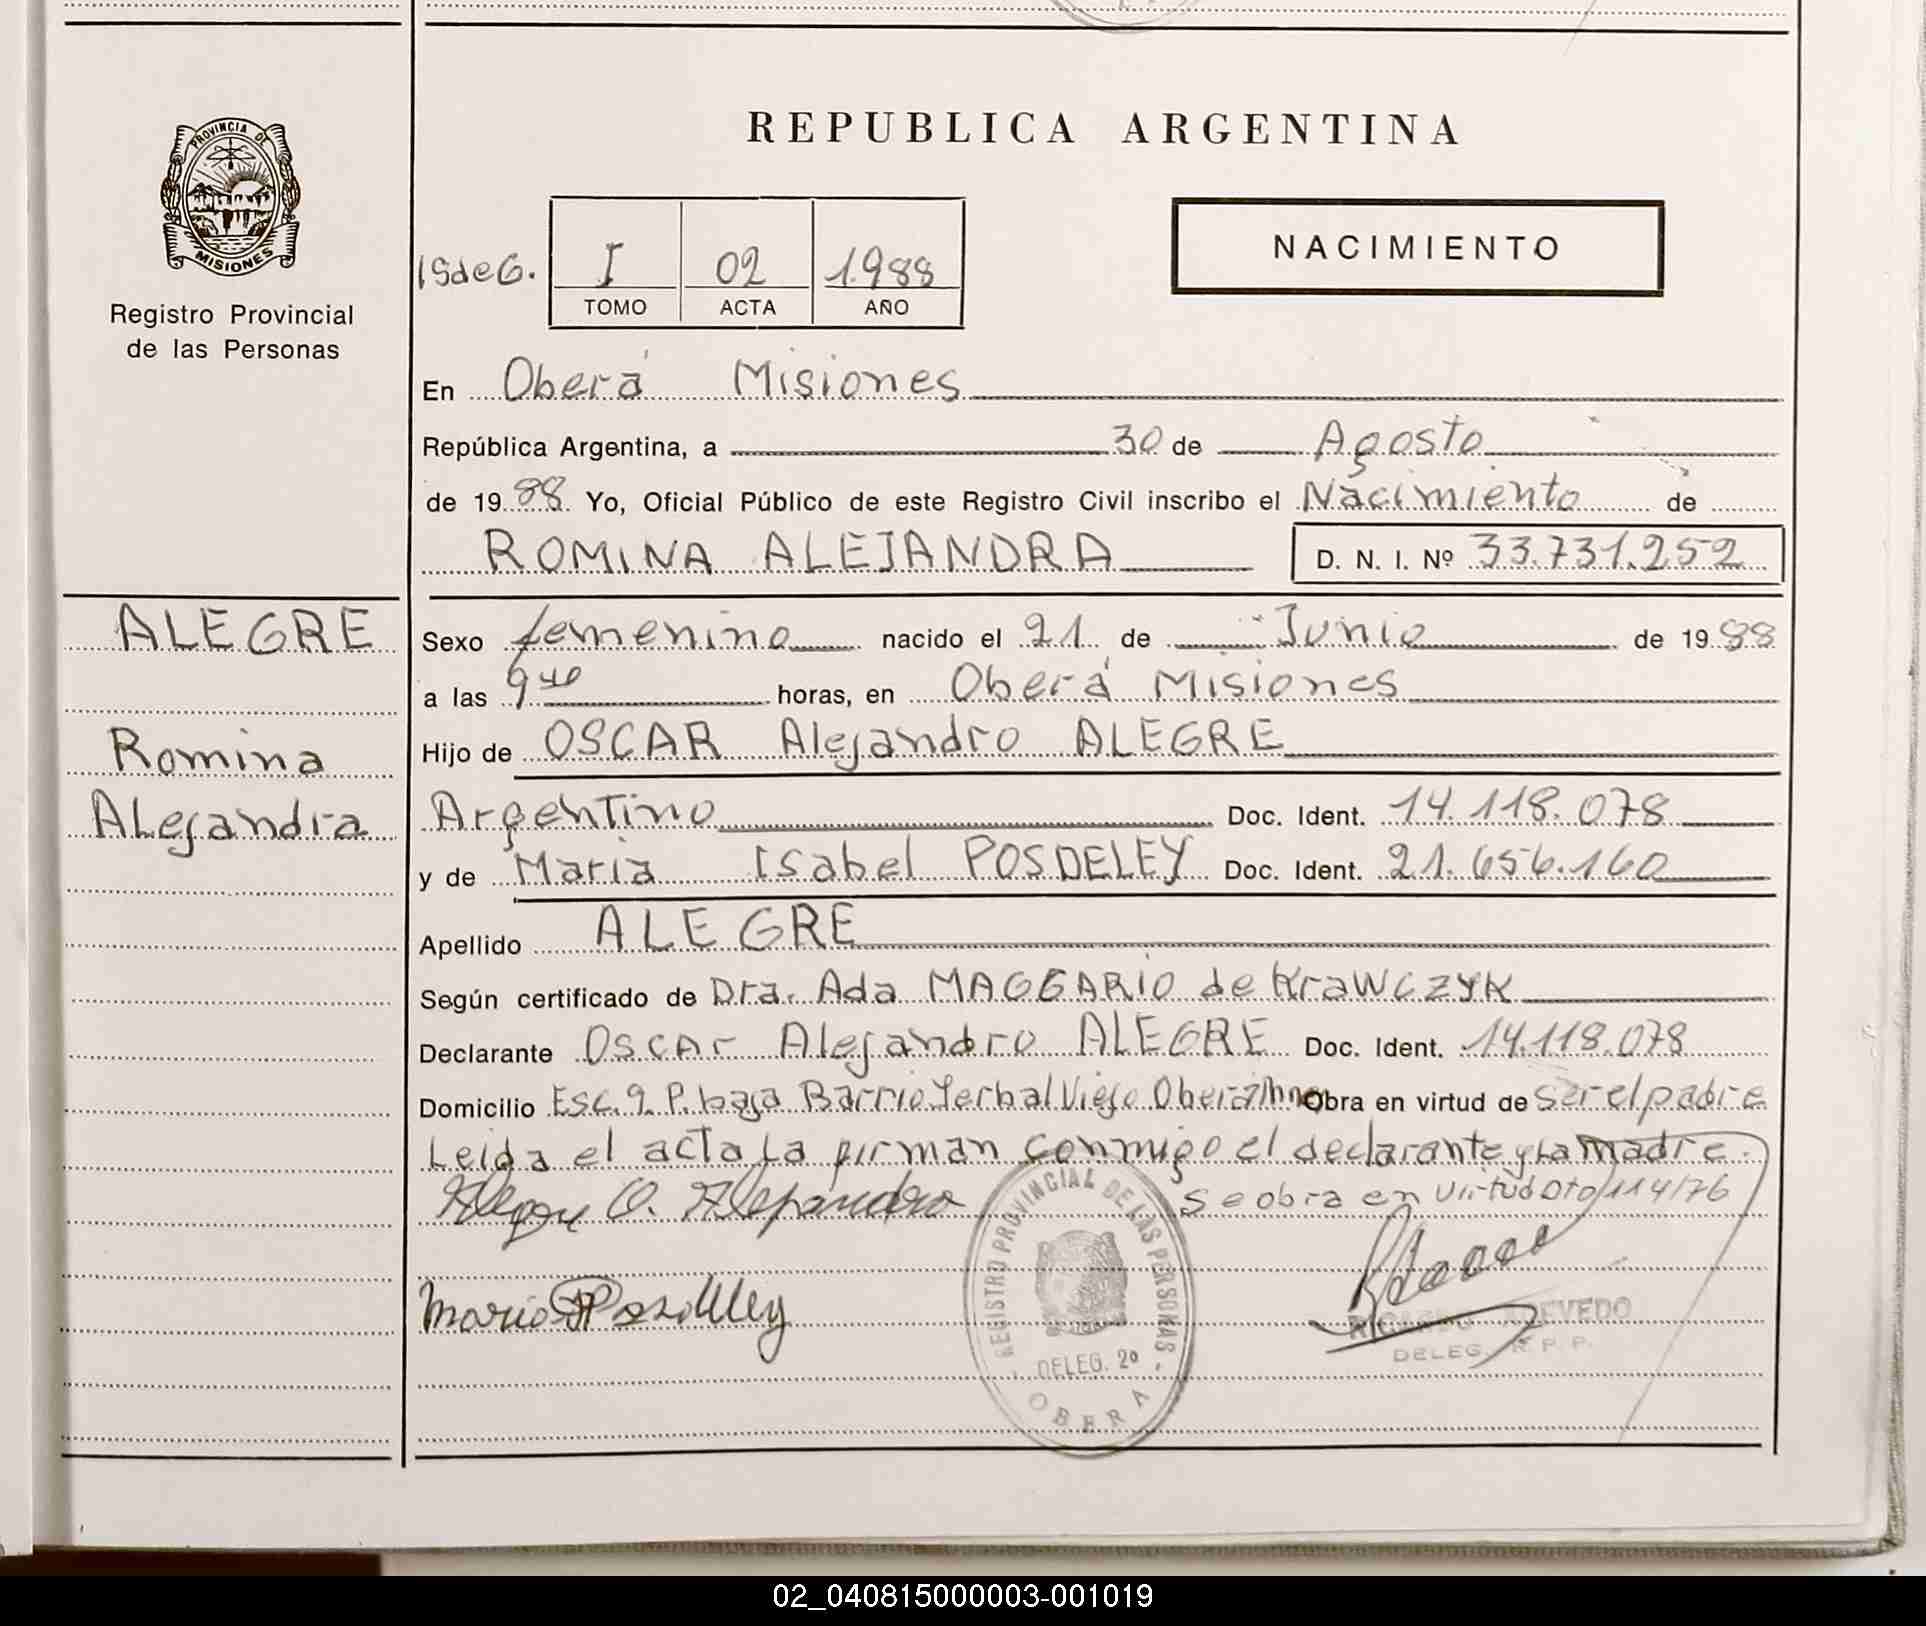 PROVINCIA DE
MISIONES
Registro Provincial
de las Personas
ALEGRE
Romina
Alejandra
REPUBLICA ARGENTINA
NACIMIENTO
I 02 1.988
TOMO ACTA AÑO
En Oberá Misiones
República Argentina, a 30 de Agosto
de 19 88 Yo, Oficial Público de este Registro Civil inscribo el Nacimiento de
ROMINA ALEJANDRA D. N. I. Nº 33.731.252
Sexo femenino nacido el 21 de Junio de 19 88
a las 9 40 horas, en Oberá Misiones
Hijo de OSCAR Alejandro ALEGRE
Argentino Doc. Ident. 14.118.078
y de Maria Isabel POSDELEY Doc. Ident. 21.656.160
Apellido ALEGRE
Según certificado de Dra. Ada MAGGARIO de KrawczyK
Declarante Oscar Alejandro ALEGRE Doc. Ident. 14.118.078
Domicilio Esc. 9 P. baja Barrio Yerbal Viejo Oberá Obra en virtud de Ser el padre
Leida el acta La firman conmigo el declarante y La madre.
Se obra en Virtud Dto 114/76
Alegre O. Alejandro
REGISTRO PROVINCIAL DE LAS PERSONAS
DELEG. 2º
OBERA
RICARDO ACEVEDO
DELEG. R. P. P.
02_040815000003-001019